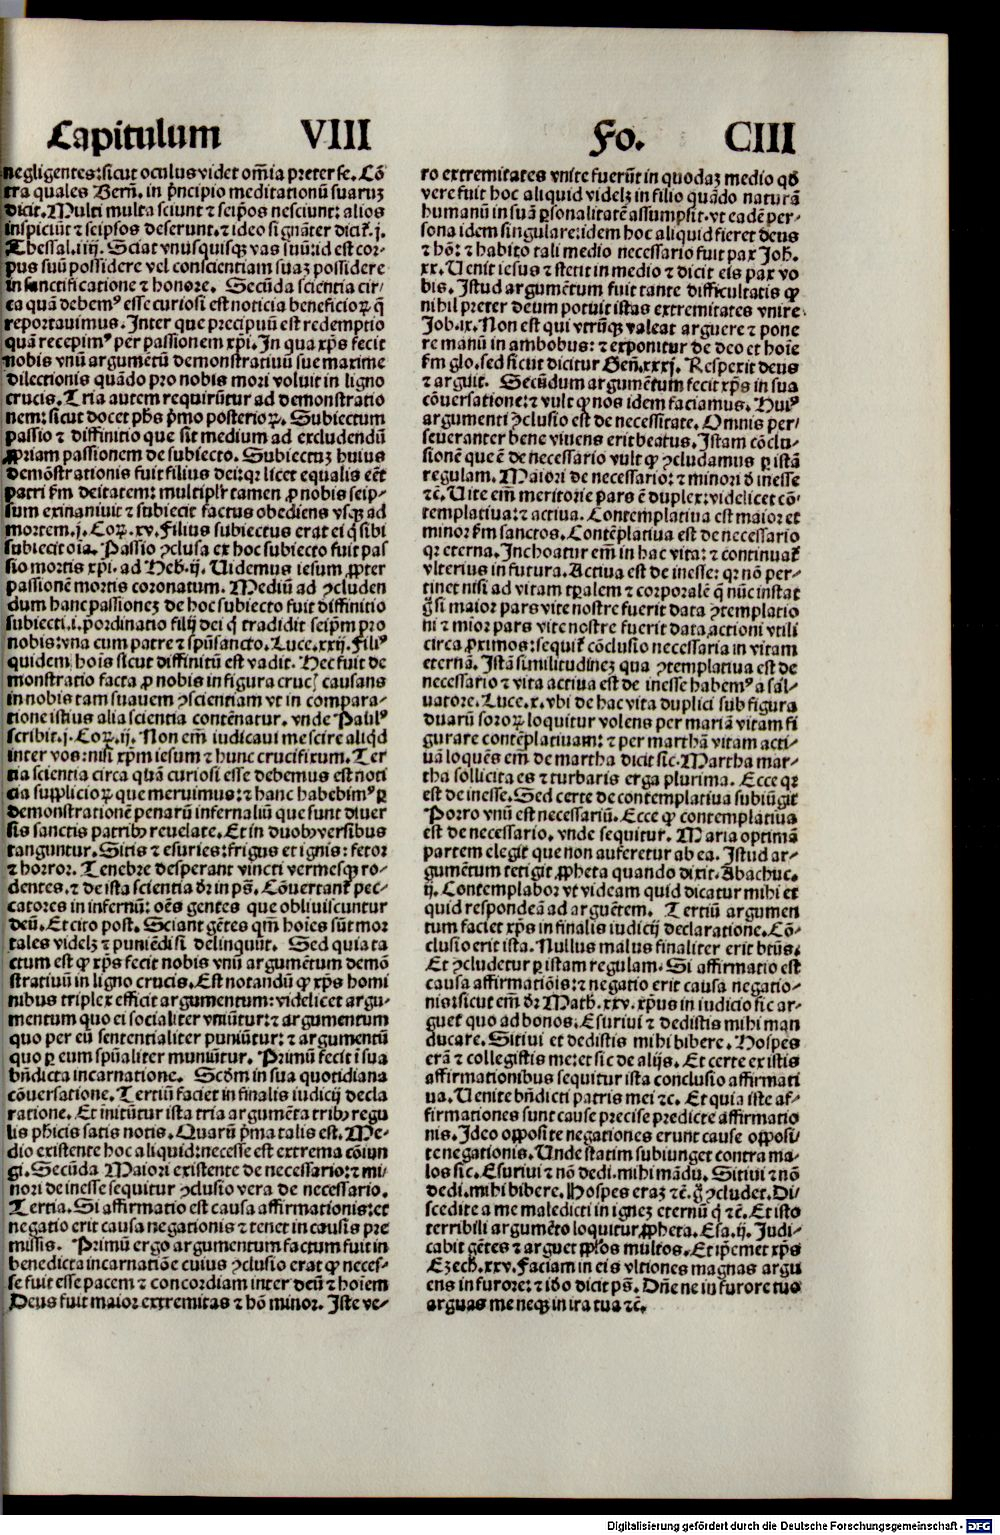 Capitulum VIII
Fo. CIII
negligentes: sicut oculus videt om̃ia preter se. Cõ
tra quales Berñ. in p̃ncipio meditationũ suaruꝫ
dicit. Multi multa sciunt ⁊ seip̃os nesciunt: alios
inspiciũt ⁊ seipsos deserunt. ⁊ ideo signãter dicit̃. j.
Thessal. iiij. Sciat vnusquisqꝫ vas suũ: id est cor-
pus suũ possidere vel conscientiam suaꝫ possidere
in sanctificatione ⁊ honore. Secũda scientia cir-
ca quã debemꝰ esse curiosi est noticia beneficioꝝ q̃
reportauimus. Inter que precipuũ est redemptio
quã recepimꝰ per passionem xp̃i. In qua xp̃s fecit
nobis vnũ argumẽtũ demonstratiuũ sue maxime
dilectionis quãdo pro nobis mori voluit in ligno
crucis. Tria autem requirũtur ad demonstratio
nem: sicut docet ph̃s p̃mo posterioꝝ. Subiectum
passio ⁊ diffinitio que sit medium ad excludendũ
ꝓpriam passionem de subiecto. Subiectuꝫ huius
demõstrationis fuit filius dei: qr licet equalis eẽt
patri s̃m deitatem: multipl'r tamen ꝓ nobis seip-
sum exinaniuit ⁊ subiecit factus obediens vsqꝫ ad
mortem. j. Coꝝ. xv. Filius subiectus erat ei q̃ sibi
subiecit oĩa. Passio ꝯclusa ex hoc subiecto fuit pas
sio mortis xp̃i. ad Heb. ij. Uidemus iesum ꝓpter
passionẽ mortis coronatum. Mediũ ad ꝯcluden
dum hanc passioneꝫ de hoc subiecto fuit diffinitio
subiecti. i. p̃ordinatio filij dei q̃ tradidit seip̃m pro
nobis: vna cum patre ⁊ sp̃usancto. Luce. xxij. Filiꝰ
quidem hoĩs sicut diffinitũ est vadit. Hec fuit de
monstratio facta ꝓ nobis in figura cruc̃ causans
in nobis tam suauem ꝯscientiam vt in compara-
tione istius alia scientia contẽnatur. vnde Paulꝰ
scribit. j. Coꝝ. ij. Non em̃ iudicaui me scire aliqd
inter vos: nisi xp̃m iesum ⁊ hunc crucifixum. Ter
tia scientia circa quã curiosi esse debemus est noti
cia supplicioꝝ que meruimus: ⁊ hanc habebimꝰ ꝑ
demonstrationẽ penarũ infernaliũ que sunt diuer
sis sanctis patribꝰ reuelate. Et in duobꝰ versibus
tanguntur. Sitis ⁊ esuries: frigus et ignis: fetor
⁊ horror. Tenebre desperant vincti vermesqꝫ ro-
dentes. ⁊ de ista scientia dr̃ in ps̃. Cõuertant̃ pec-
catores in infernũ: oẽs gentes que obliuiscuntur
deũ. Et cito post. Sciant gẽtes qm̃ hoĩes sũt mor
tales videlꝫ ⁊ puniẽdi si delinquũt. Sed quia ta
ctum est ꝙ xp̃s fecit nobis vnũ argumẽtum demõ
stratiuũ in ligno crucis. Est notandũ ꝙ xp̃s homi
nibus triplex efficit argumentum: videlicet argu-
mentum quo ei socialiter vniũtur: ⁊ argumentum
quo per eũ sententialiter puniũtur: ⁊ argumentũ
quo ꝑ eum sp̃ualiter muniũtur. Primũ fecit ĩ sua
bñdicta incarnatione. Scdm̃ in sua quotidiana
cõuersatione. Tertiũ faciet in finalis iudicij decla
ratione. Et initũtur ista tria argumẽta tribꝰ regu
lis phicis satis notis. Quarũ p̃ma talis est. Me-
dio existente hoc aliquid: necesse est extrema cõiun
gi. Secũda Maiori existente de necessario: ⁊ mi-
nori de inesse sequitur ꝯclusio vera de necessario.
Tertia. Si affirmatio est causa affirmationis: et
negatio erit causa negationis ⁊ tenet in causis pre
missis. Primũ ergo argumentum factum fuit in
benedicta incarnatiõe cuius ꝯclusio erat ꝙ neces-
se fuit esse pacem ⁊ concordiam inter deũ ⁊ hoĩem
Deus fuit maior extremitas ⁊ hõ minor. Iste ve-
ro extremitates vnite fuerũt in quodaꝫ medio qd̃
vere fuit hoc aliquid videlꝫ in filio quãdo naturã
humanũ in suã ꝑsonalitatẽ assumpsit. vt eadẽ per-
sona idem singulare: idem hoc aliquid fieret deus
⁊ hõ: ⁊ habito tali medio necessario fuit pax Joh̃.
xx. Uenit iesus ⁊ stetit in medio ⁊ dicit eis pax vo
bis. Istud argumẽtum fuit tante difficultatis ꝙ
nihil preter deum potuit istas extremitates vnire
Job. ix. Non est qui vtrũqꝫ valeat arguere ⁊ pone
re manũ in ambobus: ⁊ exponitur de deo et hoĩe
s̃m glo. sed sicut dicitur Geñ. xxxj. Respexit deus
⁊ arguit. Secũdum argumẽtum fecit xp̃s in sua
cõuersatione: ⁊ vult ꝙ nos idem faciamus. Huiꝰ
argumenti ꝯclusio est de necessitate. Omnis per-
seueranter bene viuens erit beatus. Istam cõclu-
sionẽ que ẽ de necessario vult ꝙ ꝯcludamus ꝑ istã
regulam. Maiori de necessario: ⁊ minori d̃ inesse
⁊c̃. Uite em̃ meritorie pars ẽ duplex: videlicet cõ-
templatiua: ⁊ actiua. Contemplatiua est maior et
minor s̃m sanctos. Contẽplatiua est de necessario
qr eterna. Inchoatur em̃ in hac vita: ⁊ continuat̃
vlterius in futura. Actiua est de inesse: qr nõ per-
tinet nisi ad vitam tꝑalem ⁊ corporalẽ q̃ nũc instat
g̃ si maior pars vite nostre fuerit data ꝯtemplatio
ni ⁊ mior pars vite nostre fuerit data actioni vtili
circa ꝓximos: sequit̃ cõclusio necessaria in vitam
eternã. Istã similitudineꝫ qua ꝯtemplatiua est de
necessario ⁊ vita actiua est de inesse habemꝰ a sal-
uatore. Luce. x. vbi de hac vita duplici sub figura
duarũ soroꝝ loquitur volens per mariã vitam fi
gurare contẽplatiuam: ⁊ per marthã vitam acti-
uã loquẽs em̃ de martha dicit sic. Martha mar-
tha sollicita es ⁊ turbaris erga plurima. Ecce qr
est de inesse. Sed certe de contemplatiua subiũgit
Porro vnũ est necessariũ. Ecce ꝙ contemplatiua
est de necessario. vnde sequitur. Maria optimã
partem elegit que non auferetur ab ea. Istud ar-
gumẽtum tetigit ꝓpheta quando dixit. Abachuc.
ij. Contemplabor vt videam quid dicatur mihi et
quid respondeã ad arguẽtem. Tertiũ argumen
tum faciet xp̃s in finalis iudicij declaratione. Cõ-
clusio erit ista. Nullus malus finaliter erit btũs.
Et ꝯcludetur ꝑ istam regulam. Si affirmatio est
causa affirmatiõis: ⁊ negatio erit causa negatio-
nis: sicut em̃ dr̃: Math. xxv. xp̃us in iudicio sic ar-
guet̃ quo ad bonos. Esuriui ⁊ dedistis mihi man
ducare. Sitiui et dedistis mihi bibere. Hospes
erã ⁊ collegistis me: et sic de alijs. Et certe ex istis
affirmationibus sequitur ista conclusio affirmati
ua. Uenite bñdicti patris mei ⁊c. Et quia iste af-
firmationes sunt cause precise predicte affirmatio
nis. Ideo opposite negationes erunt cause opposi-
te negationis. Unde statim subiunget contra ma-
los sic. Esuriui ⁊ nõ dedi. mihi mãdu. Sitiui ⁊ nõ
dedi. mihi bibere. Hospes eraꝫ ⁊c̃. g̃ ꝯcludet. Di-
scedite a me maledicti in igneꝫ eternũ q̃ ⁊c̃. Et isto
terribili argumẽto loquitur ꝓpheta. Esa. ij. Judi-
cabit gẽtes ⁊ arguet ppl̃os multos. Et ip̃emet xp̃s
Ezech. xxv. Faciam in eis vltiones magnas argu
ens in furore: ⁊ iõo dicit ps̃. Dñe ne in furore tuo
arguas me neqꝫ in ira tua ⁊c̃.
Digitalisierung gefördert durch die Deutsche Forschungsgemeinschaft - DFG